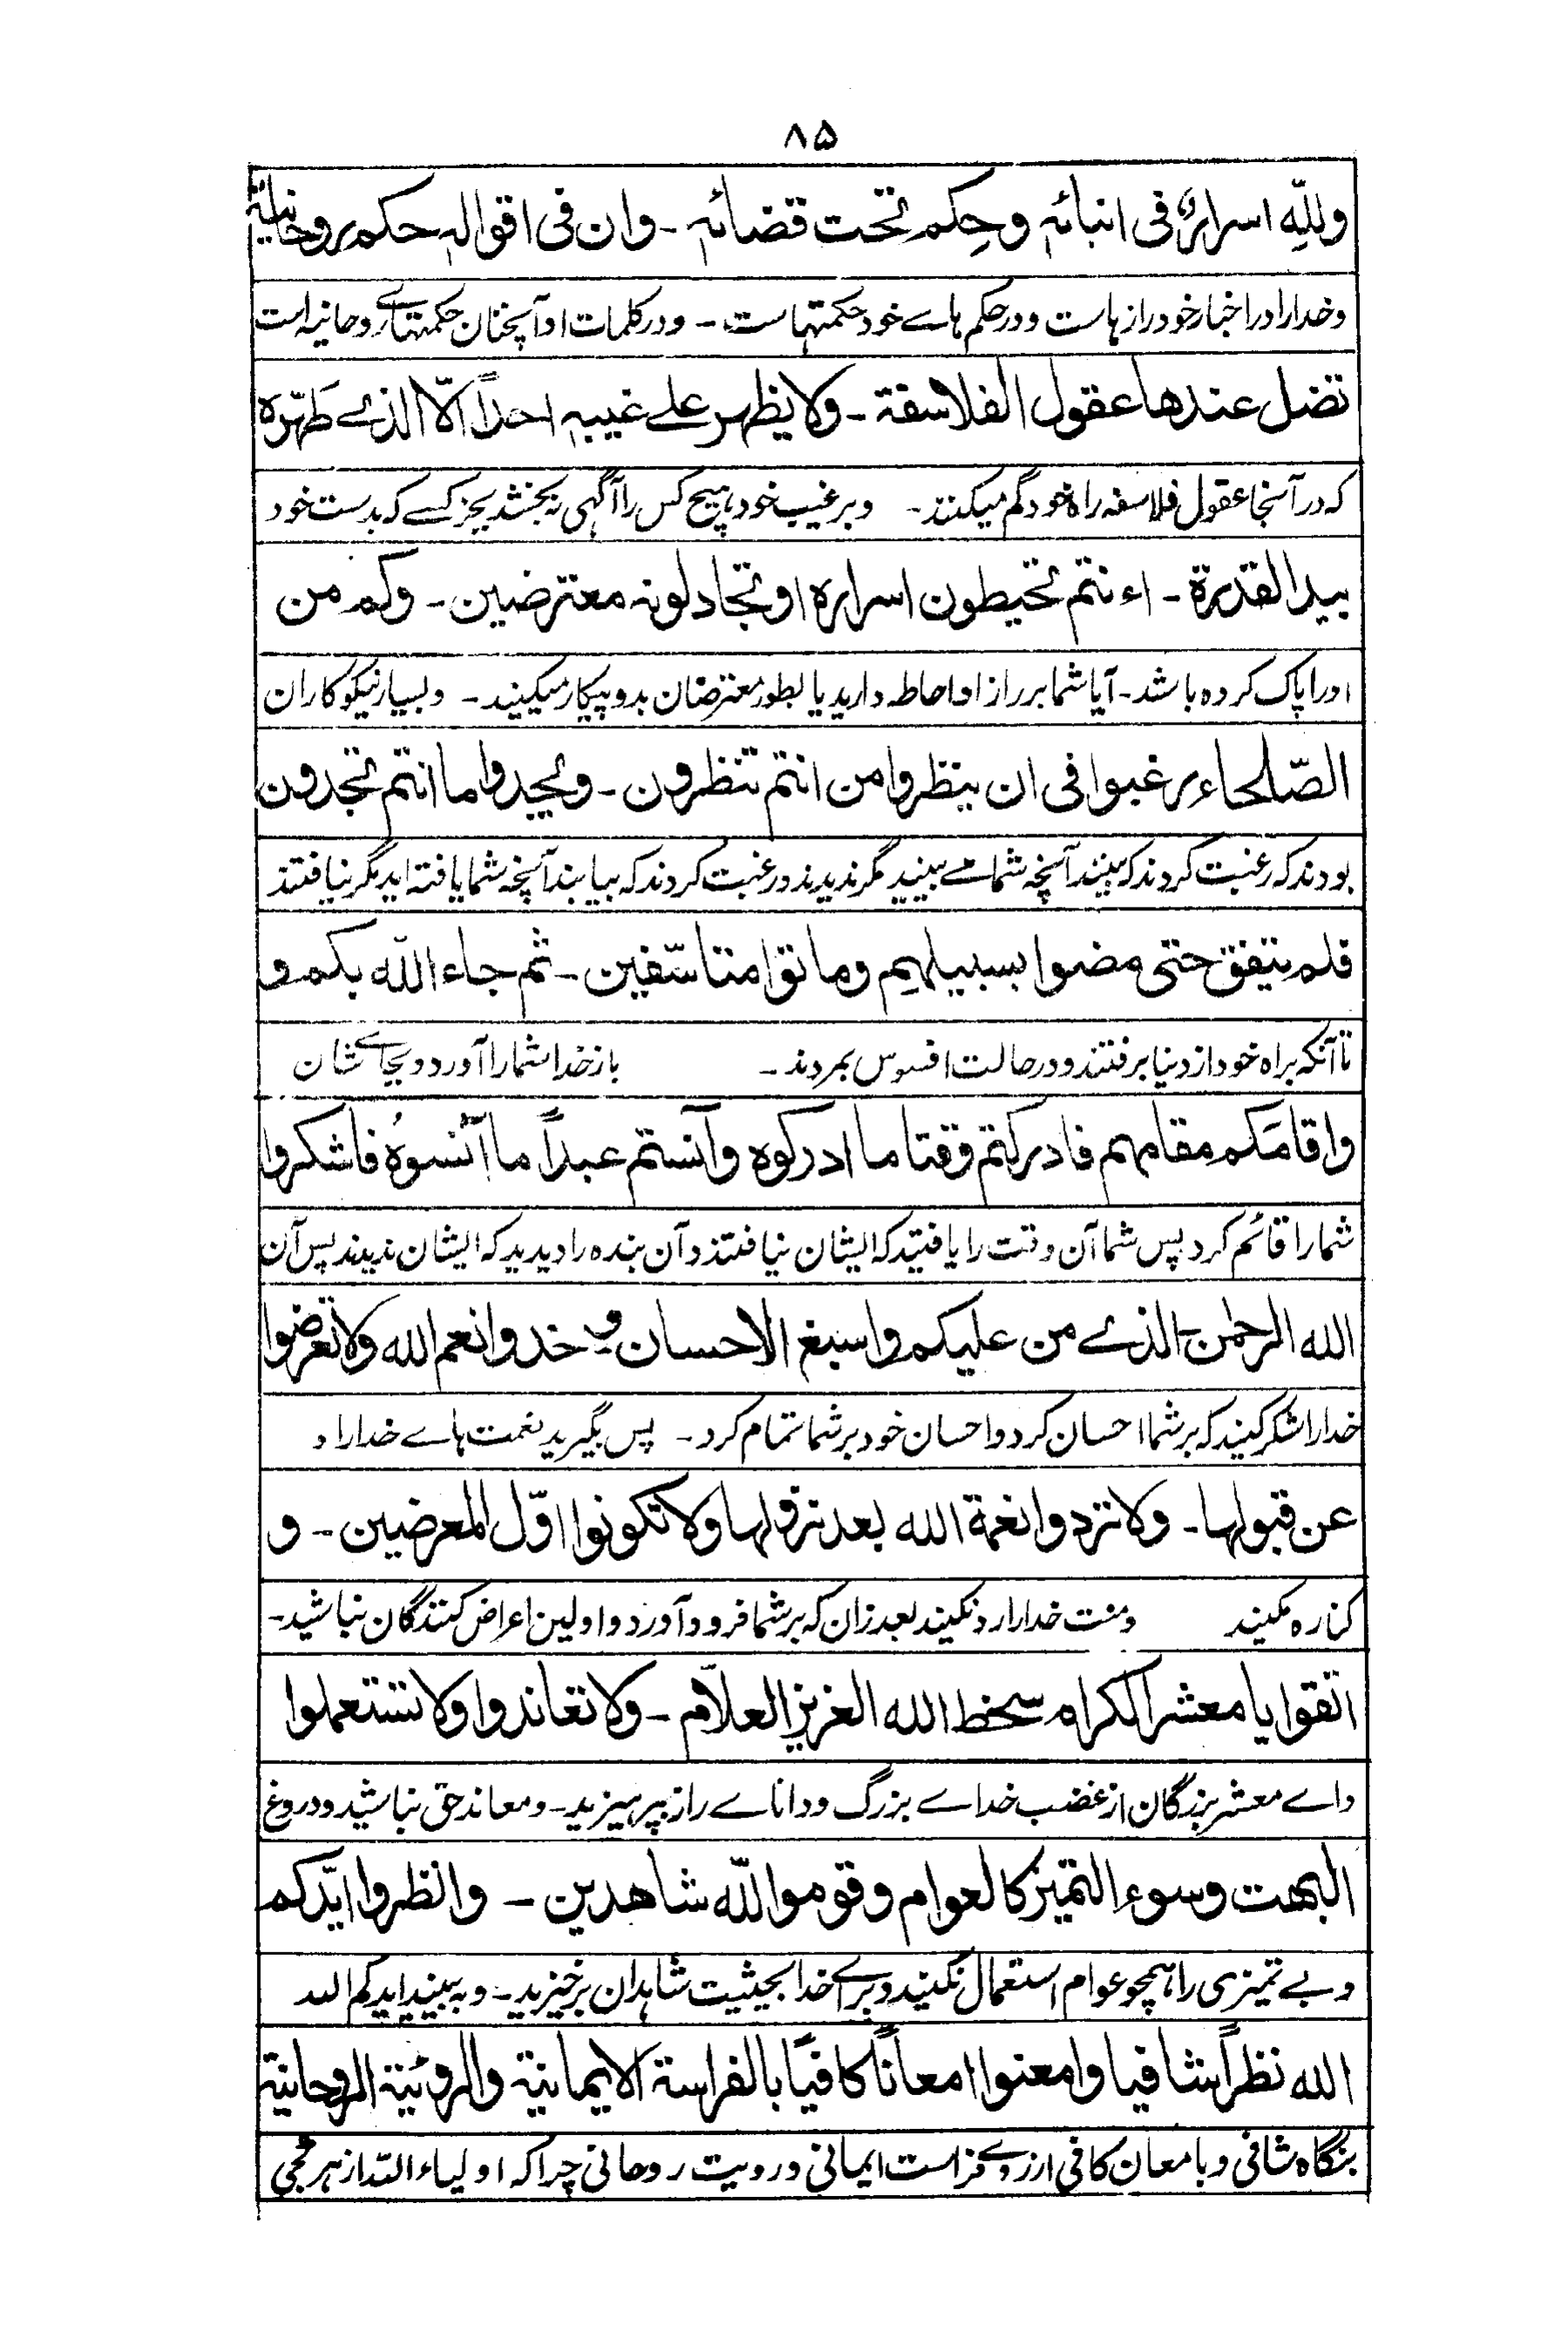 ۸۵
وللّٰہ اسرارٌ فی انبائہ وحِکم تحت قضائہ ۔ وان فی اقوالہ حکم روحانیۃ
وخدا را در اخبار خود راز ہاست و در حکم ہاے خود حکمتہاست ۔ و در کلمات او آنچنان حکمتہاے روحانیہ است
تضل عندھا عقول الفلاسفۃ ۔ ولا یظھر علے غیبہ احداً الّا الذے طَھّرہ
کہ در آنجا عقول فلاسفہ راہ خود گم میکنند ۔ و بر غیب خود ہیچ کس را آگہی نہ بخشد بجز کسے کہ بدست خود
بید القدرۃ ۔ اءنتم تحیطون اسرارہ او تجادلونہ معترضین ۔ وکم من
او را پاک کردہ باشد ۔ آیا شما بر راز او احاطہ دارید یا بطور معترضان بدو پیکار میکنید ۔ و بسیار نیکوکاران
الصّلحاء رغبوا فی ان ینظروا من انتم تنظرون ۔ ویجدوا ما انتم تجدون
بودند کہ رغبت کردند کہ بینند آنچہ شما مے بینید مگر ندیدند و رغبت کردند کہ بیابند آنچہ شما یافتہ اید مگر نیافتند
فلم یتفق حتی مضوا بسبیلھم وماتوا متاسّفین ۔ ثم جاء اللّٰہ بکم و
تا آنکہ براہ خود از دنیا برفتند و در حالت افسوس بمردند ۔ باز خدا شما را آورد و بجاے شان
واقامَکم مقامہم فادرکتم وقتا ما ادرکوہ وآنستم عبداً ما اٰنسوہُ فاشکروا
شما را قائم کرد پس شما آن وقت را یافتید کہ ایشان نیافتند و آن بندہ را دیدید کہ ایشان ندیدند پس آن
اللہ الرحمٰن الذے من علیکم واسبغ الاحسان ۔ و خذوا نعم اللہ ولا تعرضوا
خدا را شکر کنید کہ بر شما احسان کرد و احسان خود بر شما تمام کرد ۔ پس بگیرید نعمت ہاے خدا را و
عن قبولھا ۔ ولا تردوا نعمۃ اللہ بعد نزولھا ولا تکونوا اوّل المعرضین ۔ و
کنارہ مکنید و منت خدا را رد نکنید بعد زان کہ بر شما فرود آورد و اولین اعراض کنندگان نباشید ۔
اتقوا یا معشر الکرام سخط اللہ العزیز العلّام ۔ ولا تعاندوا ولا تستعملوا
و اے معشر بزرگان از غضب خداے بزرگ و داناے راز بپرہیزید ۔ و معاند حق نباشید و دروغ
البھت وسوء التمیز کالعوام وقوموا للّٰہ شاھدین ۔ وانظروا ایّدکم
و بے تمیزی را ہمچو عوام استعمال نکنید و براے خدا بحیثیت شاہدان برخیزید ۔ و بہ بینید ایدکم اللہ
اللہ نظراً شافیا وامعنوا امعاناً کافیًا بالفراسۃ الایمانیۃ والرویٔۃ الروحانیۃ
بنگاہ شافی و بامعان کافی از روے فراست ایمانی و رویت روحانی چراکہ اولیاء اللہ از ہر